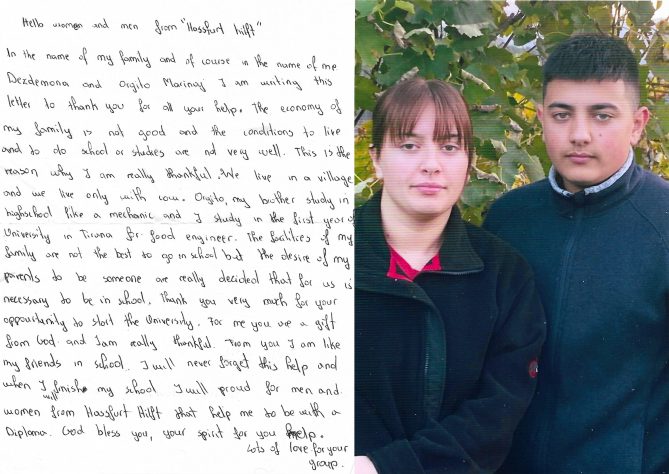 Hello women and men from "Hassfurt hilft"
In the name of my family and of course in the name of me
Dezdemona and Orgito Marinaj I am writing this
letter to thank you for all your help. The economy of
my family is not good and the conditions to live
and to do school or studies are not very well. This is the
reason why I am really thankful. We live in a village
and we live only with cow. Orgito, my brother study in
highschool like a mechanic and I study in the first year of
University in Tirana for food engineer. The facilities of my
family are not the best to go in school but the desire of my
parents to be someone are really decided that for us is
necessary to be in school. Thank you very much for your
oppourtunity to start the University. For me you are a gift
from God and I am really thankful. From you I am like
my friends in school. I will never forget this help and
when I will finish my school I will proud for men and
women from Hassfurt Hilft that help me to be with a
Diploma. God bless you, your spirit for you help.
Lots of love for your
group.